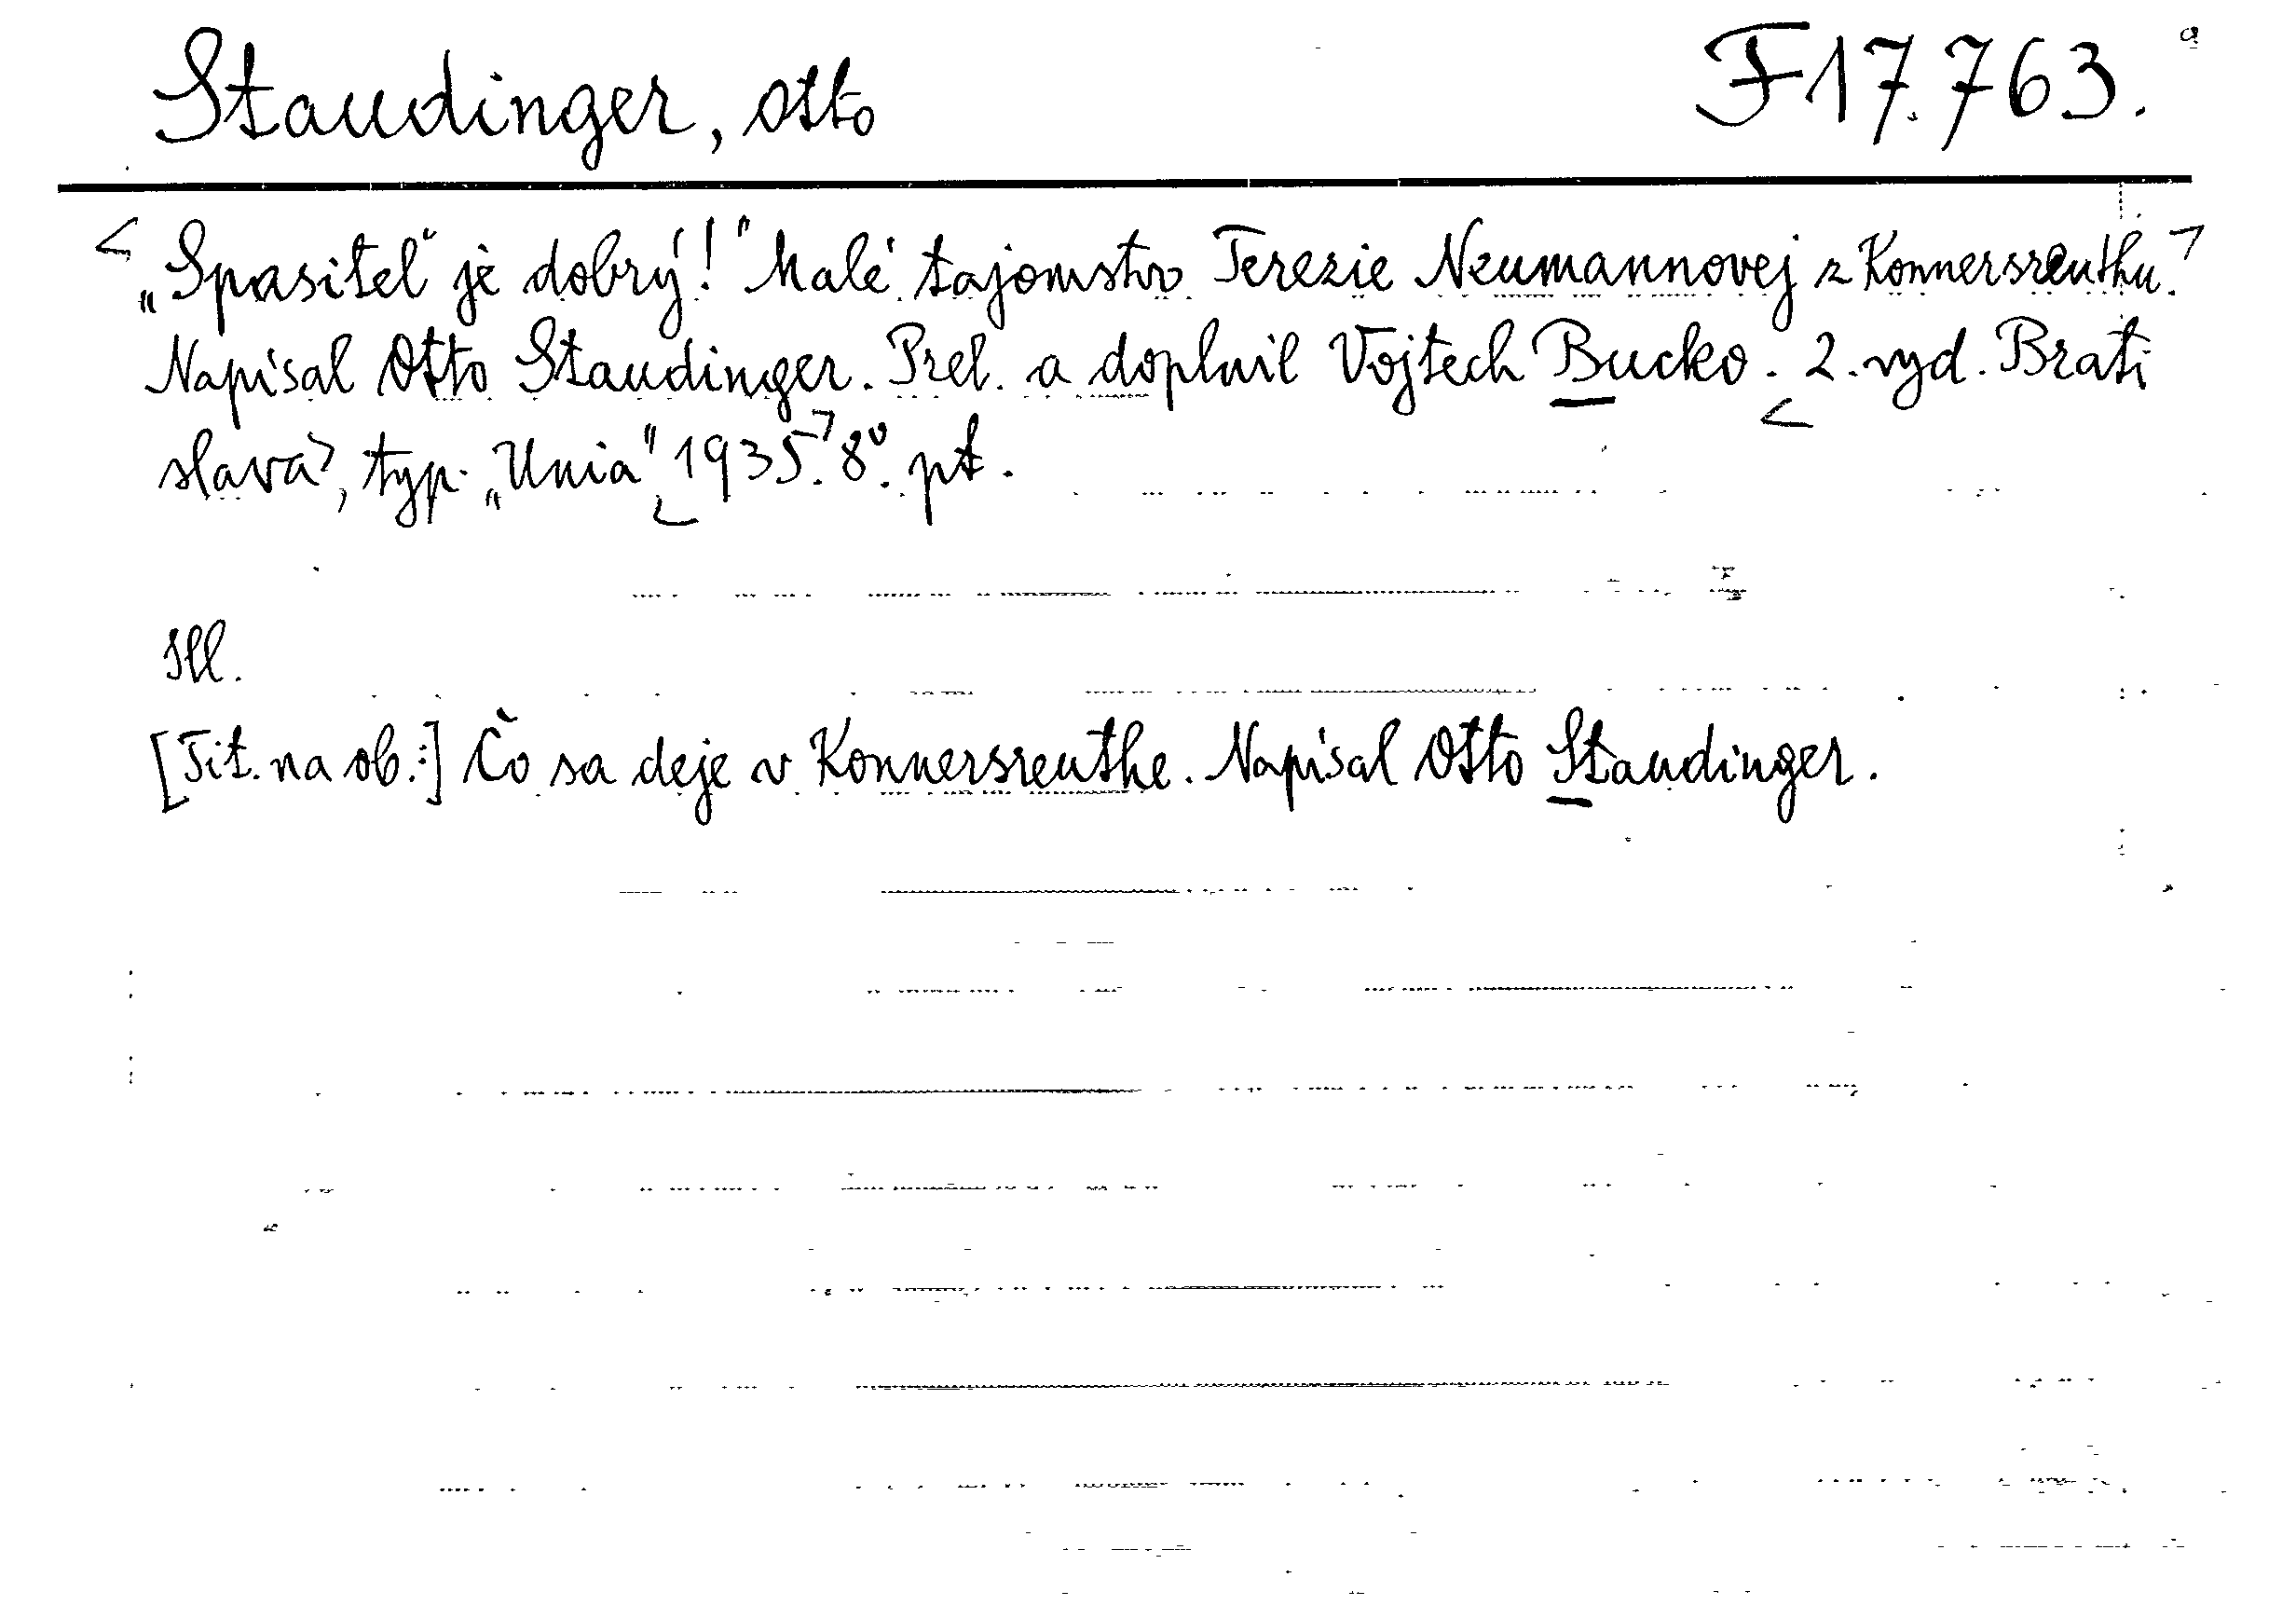 Staudinger, Otto F 17.763. a
<„Spasiteľ je dobrý!" Malé tajomstvo Terezie Neumannovej z Konnersreuthu.>
Napísal Otto Staudinger. Prel. a doplnil Vojtech Bucko. <2. vyd. Brati
slava>, typ. „Unia", <1935.> 8°. pt.
Ill.
[Tit. na ob.:] Čo sa deje v Konnersreuthe. Napísal Otto Staudinger.